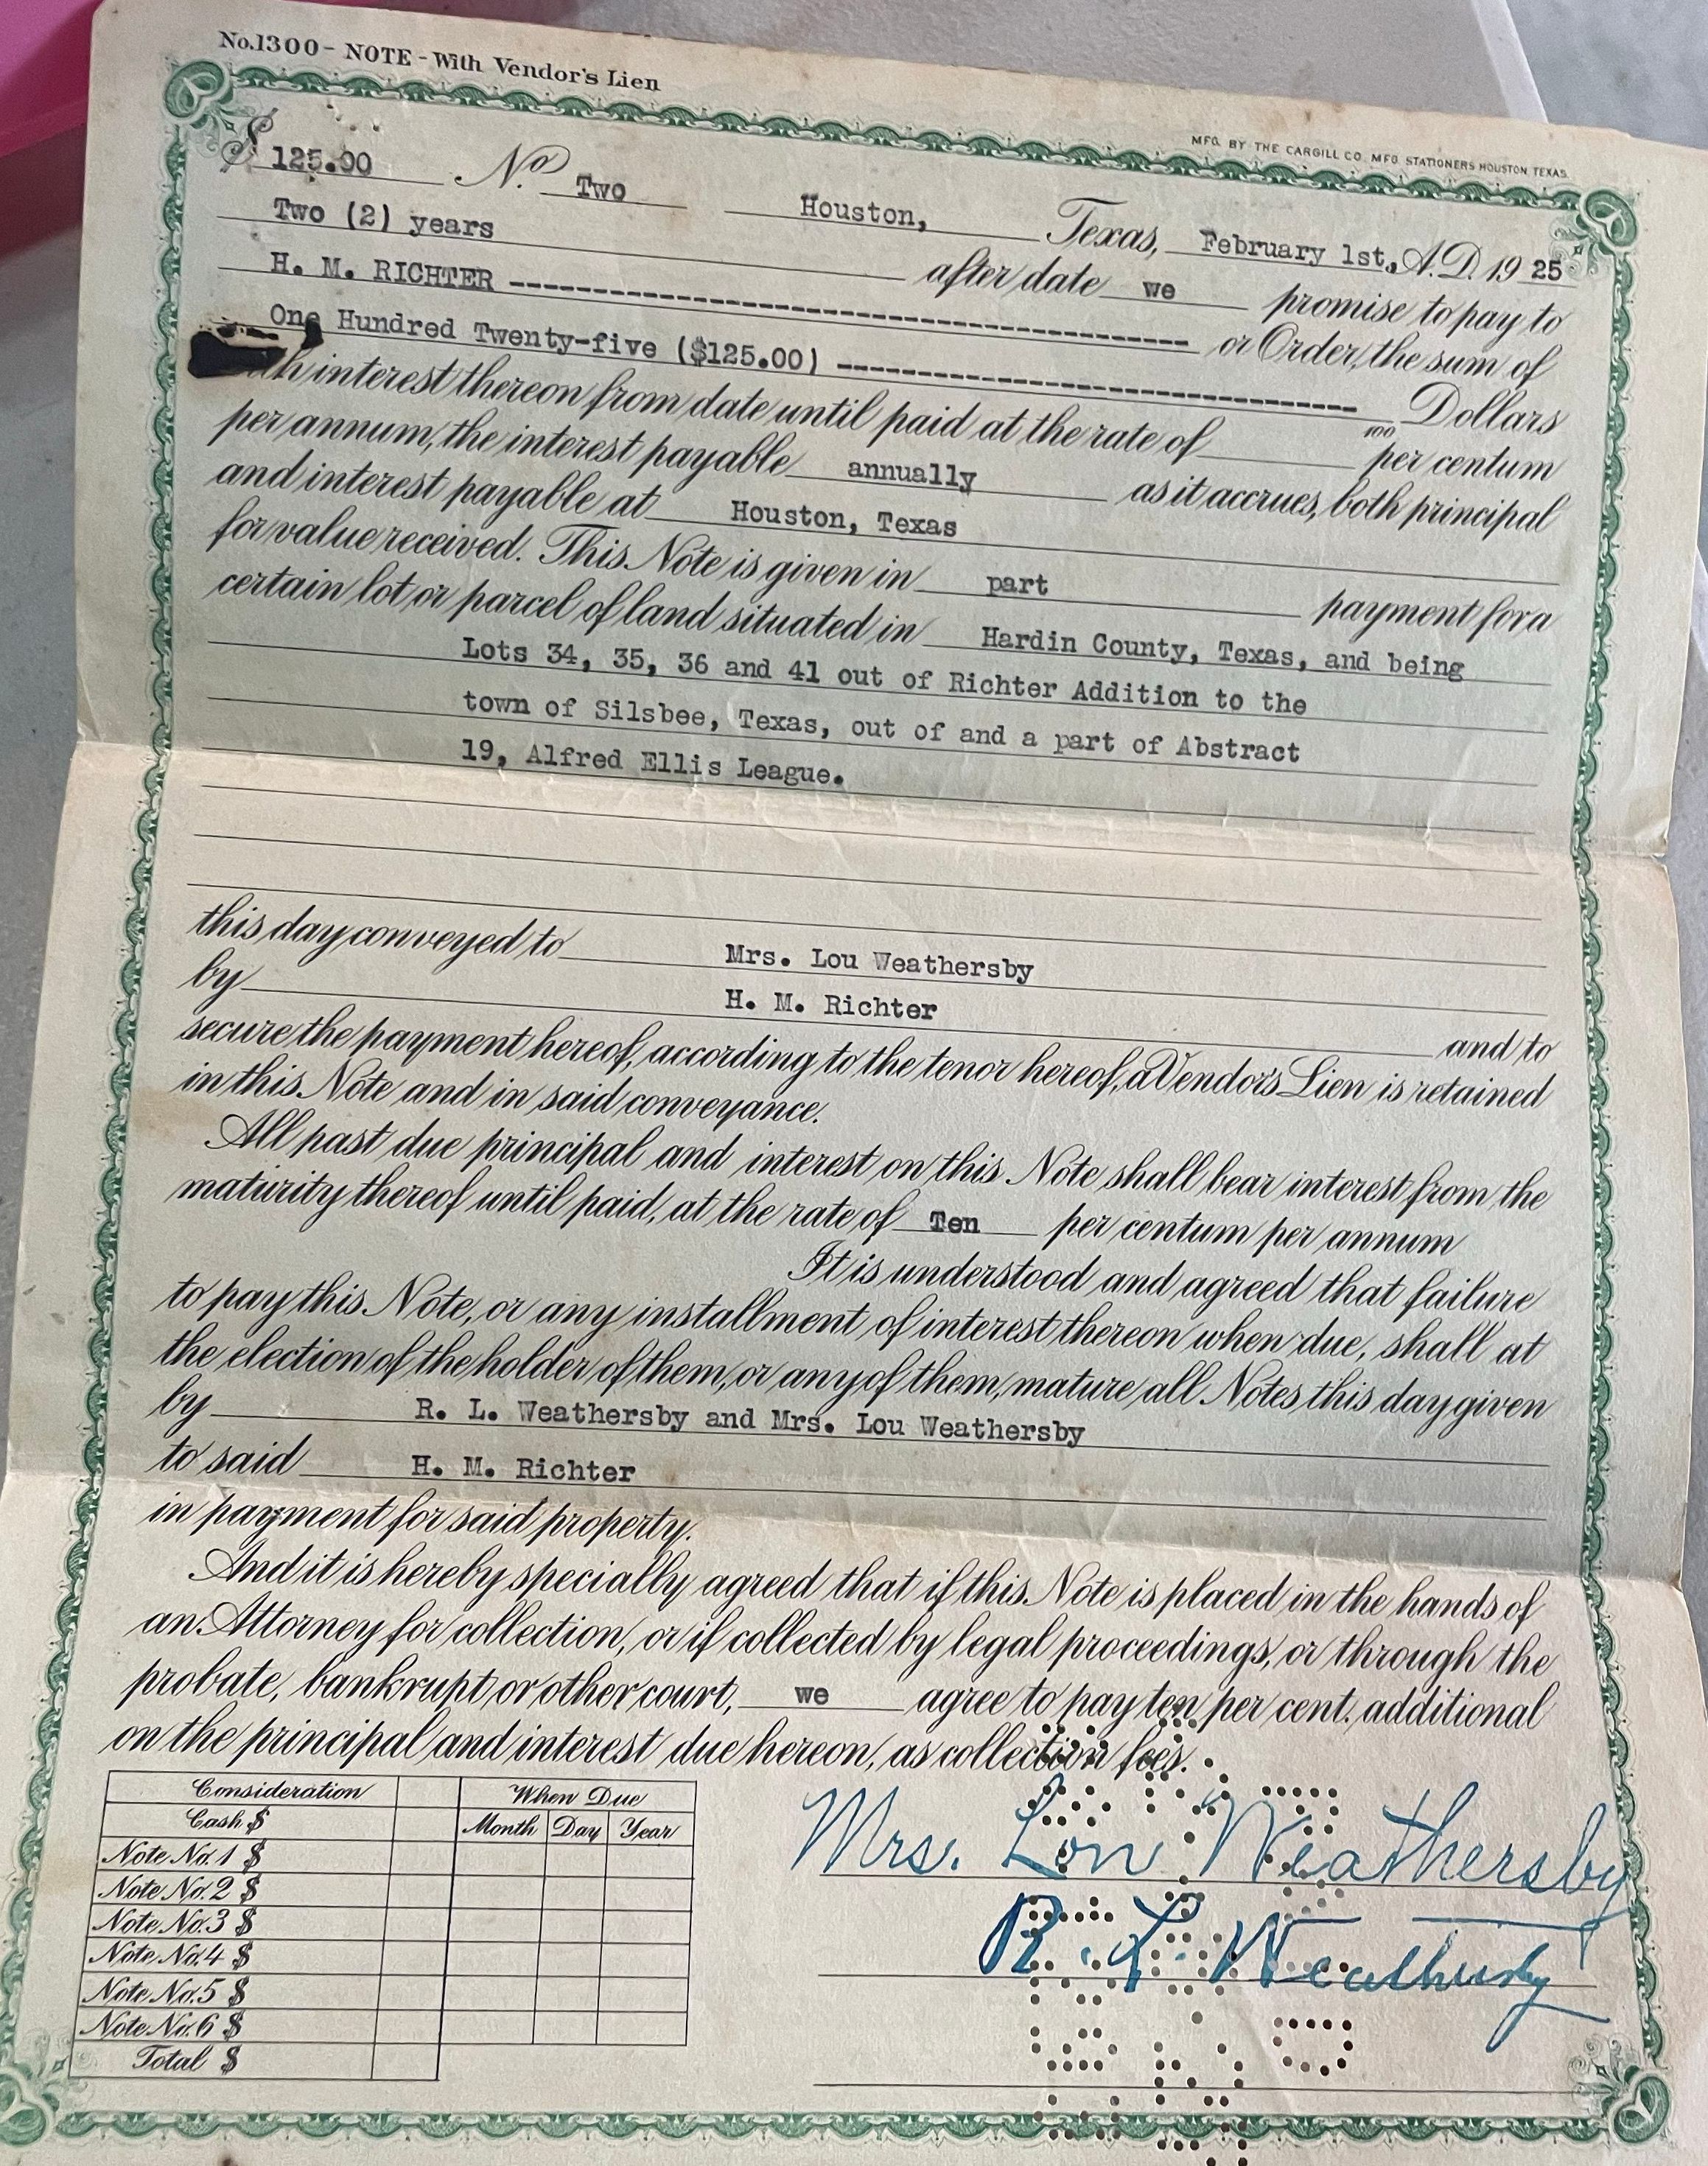 No.1300- NOTE - With Vendor's Lien
MFG. BY THE CARGILL CO. MFG STATIONERS HOUSTON TEXAS.
$ 125.00 No Two Houston, Texas, February 1st, A.D. 19 25
Two (2) years after date we promise to pay to
H. M. RICHTER ---------------------------------------- or Order, the sum of
One Hundred Twenty-five ($125.00) ------------------------------ 100 Dollars
interest thereon from date until paid at the rate of per centum
per annum, the interest payable annually as it accrues, both principal
and interest payable at Houston, Texas
for value received. This Note is given in part payment for a
certain lot or parcel of land situated in Hardin County, Texas, and being
Lots 34, 35, 36 and 41 out of Richter Addition to the
town of Silsbee, Texas, out of and a part of Abstract
19, Alfred Ellis League.
this day conveyed to Mrs. Lou Weathersby
by H. M. Richter and to
secure the payment hereof, according to the tenor hereof, a Vendor's Lien is retained
in this Note and in said conveyance.
All past due principal and interest on this Note shall bear interest from the
maturity thereof until paid, at the rate of Ten per centum per annum
It is understood and agreed that failure
to pay this Note, or any installment of interest thereon when due, shall at
the election of the holder of them, or any of them, mature all Notes this day given
by R. L. Weathersby and Mrs. Lou Weathersby
to said H. M. Richter
in payment for said property.
And it is hereby specially agreed that if this Note is placed in the hands of
an Attorney for collection, or if collected by legal proceedings, or through the
probate, bankrupt or other court, we agree to pay ten per cent. additional
on the principal and interest due hereon, as collection fees.
Consideration When Due
Cash $ Month Day Year
Note No. 1 $
Note No. 2 $
Note No. 3 $
Note No. 4 $
Note No. 5 $
Note No. 6 $
Total $
Mrs. Lou Weathersby
R. L. Weathersby